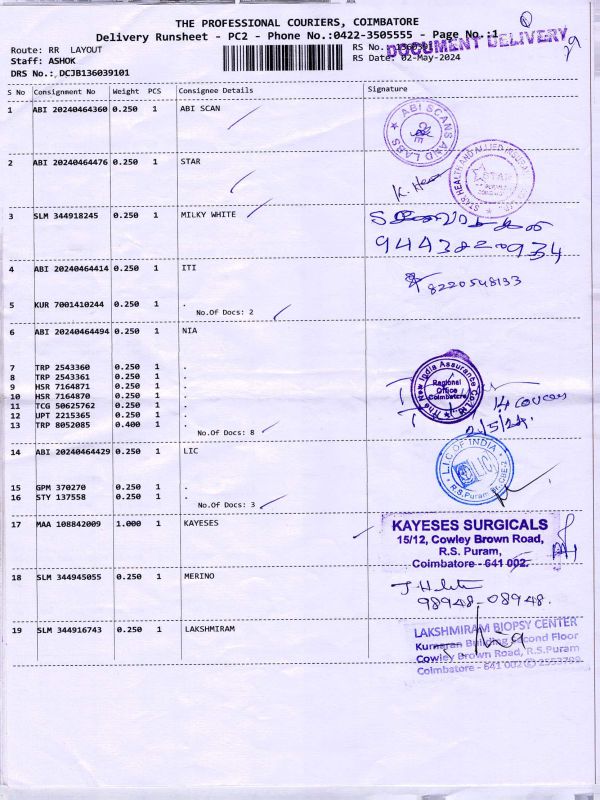 THE PROFESSIONAL COURIERS, COIMBATORE
Delivery Runsheet - PC2 - Phone No.:0422-3505555 - Page No.:1
DOCUMENT DELIVERY
Route: RR LAYOUT
RS No.
Staff: ASHOK
RS Date: 02-May-2024
DRS No.: DCJB136039101
S No Consignment No Weight PCS Consignee Details Signature
1 ABI 20240464360 0.250 1 ABI SCAN
ABI SCANS AND LABS
2 ABI 20240464476 0.250 1 STAR
STAR HEALTH AND ALLIED
STAR
3 SLM 344918245 0.250 1 MILKY WHITE
9443820934
4 ABI 20240464414 0.250 1 ITI
8220548133
5 KUR 7001410244 0.250 1 .
No.Of Docs: 2
6 ABI 20240464494 0.250 1 NIA
7 TRP 2543360 0.250 1 .
8 TRP 2543361 0.250 1 .
9 HSR 7164871 0.250 1 .
10 HSR 7164870 0.250 1 .
11 TCG 50625762 0.250 1 .
12 UPT 2215365 0.250 1 .
13 TRP 8052085 0.400 1 .
No.Of Docs: 8
The New India Assurance Co. Ltd
Regional
Office
Coimbatore
14
2/5/24
14 ABI 20240464429 0.250 1 LIC
15 GPM 370270 0.250 1 .
16 STY 137558 0.250 1 .
No.Of Docs: 3
L.I.C OF INDIA
LIC
R.S.Puram Br., CBE-2
17 MAA 108842009 1.000 1 KAYESES
KAYESES SURGICALS
15/12, Cowley Brown Road,
R.S. Puram,
Coimbatore - 641 002.
18 SLM 344945055 0.250 1 MERINO
98948-08948.
19 SLM 344916743 0.250 1 LAKSHMIRAM
LAKSHMIRAM BIOPSY CENTER
Kumaran Building Second Floor
Cowley Brown Road, R.S.Puram
Coimbatore - 641 002